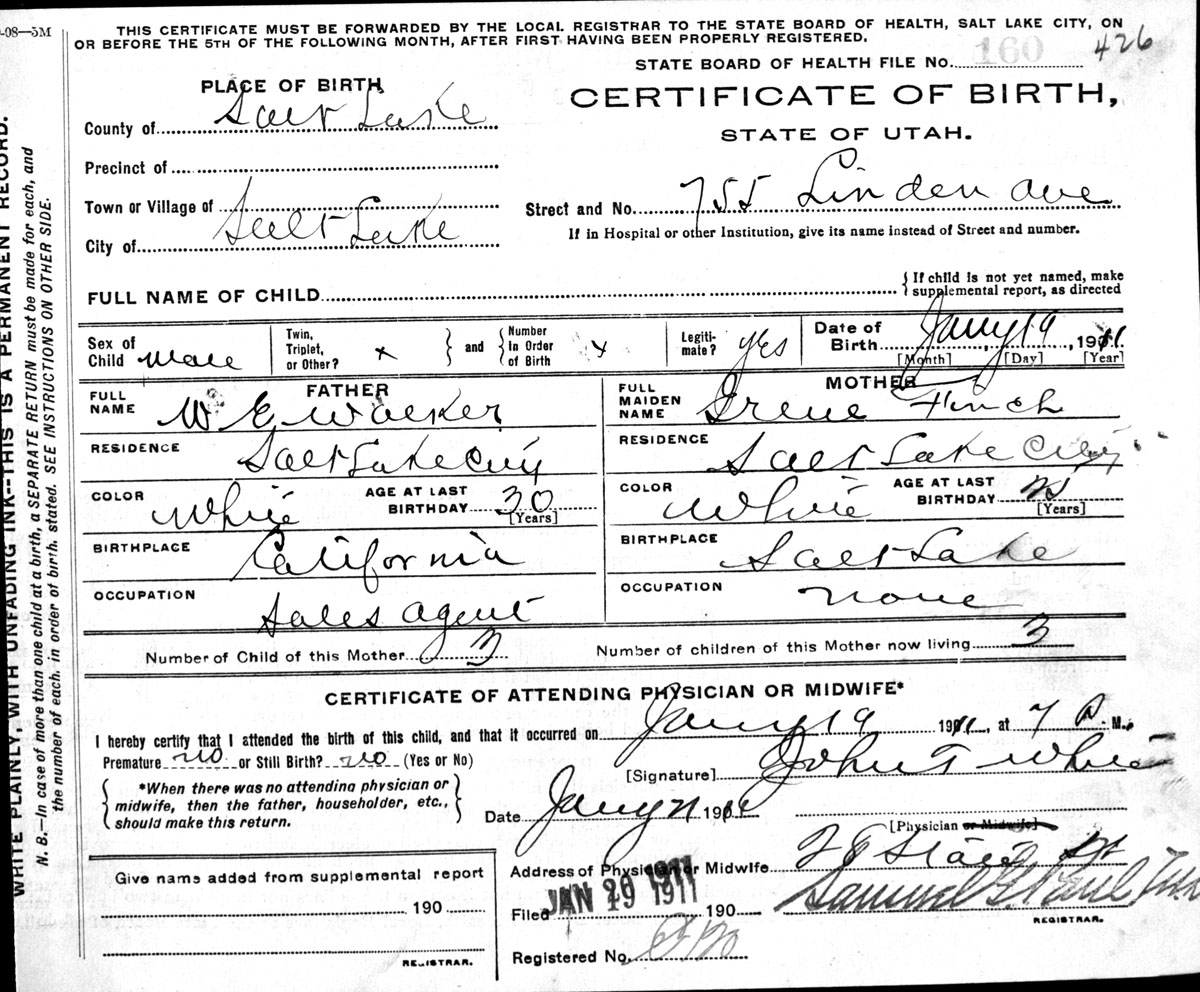 -08—5M
THIS CERTIFICATE MUST BE FORWARDED BY THE LOCAL REGISTRAR TO THE STATE BOARD OF HEALTH, SALT LAKE CITY, ON
OR BEFORE THE 5TH OF THE FOLLOWING MONTH, AFTER FIRST HAVING BEEN PROPERLY REGISTERED.
STATE BOARD OF HEALTH FILE No. 160 426
PLACE OF BIRTH
CERTIFICATE OF BIRTH,
STATE OF UTAH.
County of Salt Lake
Precinct of
Town or Village of
Street and No. 755 Linden ave
City of Salt Lake
If in Hospital or other Institution, give its name instead of Street and number.
FULL NAME OF CHILD { If child is not yet named, make supplemental report, as directed
Sex of Child male
Twin, Triplet, or Other? x } and { Number In Order of Birth x
Legiti- mate? yes
Date of Birth Jany 19, 1911
[Month] [Day] [Year]
FATHER
FULL NAME W E Walker
RESIDENCE Salt Lake City
COLOR White AGE AT LAST BIRTHDAY 30 [Years]
BIRTHPLACE California
OCCUPATION Sales agent
MOTHER
FULL MAIDEN NAME Irene Finch
RESIDENCE Salt Lake City
COLOR White AGE AT LAST BIRTHDAY [Years]
BIRTHPLACE Salt Lake
OCCUPATION none
Number of Child of this Mother 3 Number of children of this Mother now living 3
CERTIFICATE OF ATTENDING PHYSICIAN OR MIDWIFE*
I hereby certify that I attended the birth of this child, and that it occurred on Jany 19 1911, at 7 M.
Premature no or Still Birth? no (Yes or No)
[Signature] John T White
{ *When there was no attending physician or
midwife, then the father, householder, etc.,
should make this return. }
Date Jany 21 1911
[Physician or Midwife]
Address of Physician or Midwife
Filed JAN 29 1911 190
Samuel G Paul
REGISTRAR.
Registered No.
Give name added from supplemental report
190
REGISTRAR.
WRITE PLAINLY, WITH UNFADING INK--THIS IS A PERMANENT RECORD.
N. B.—In case of more than one child at a birth, a SEPARATE RETURN must be made for each, and
the number of each, in order of birth, stated. SEE INSTRUCTIONS ON OTHER SIDE.